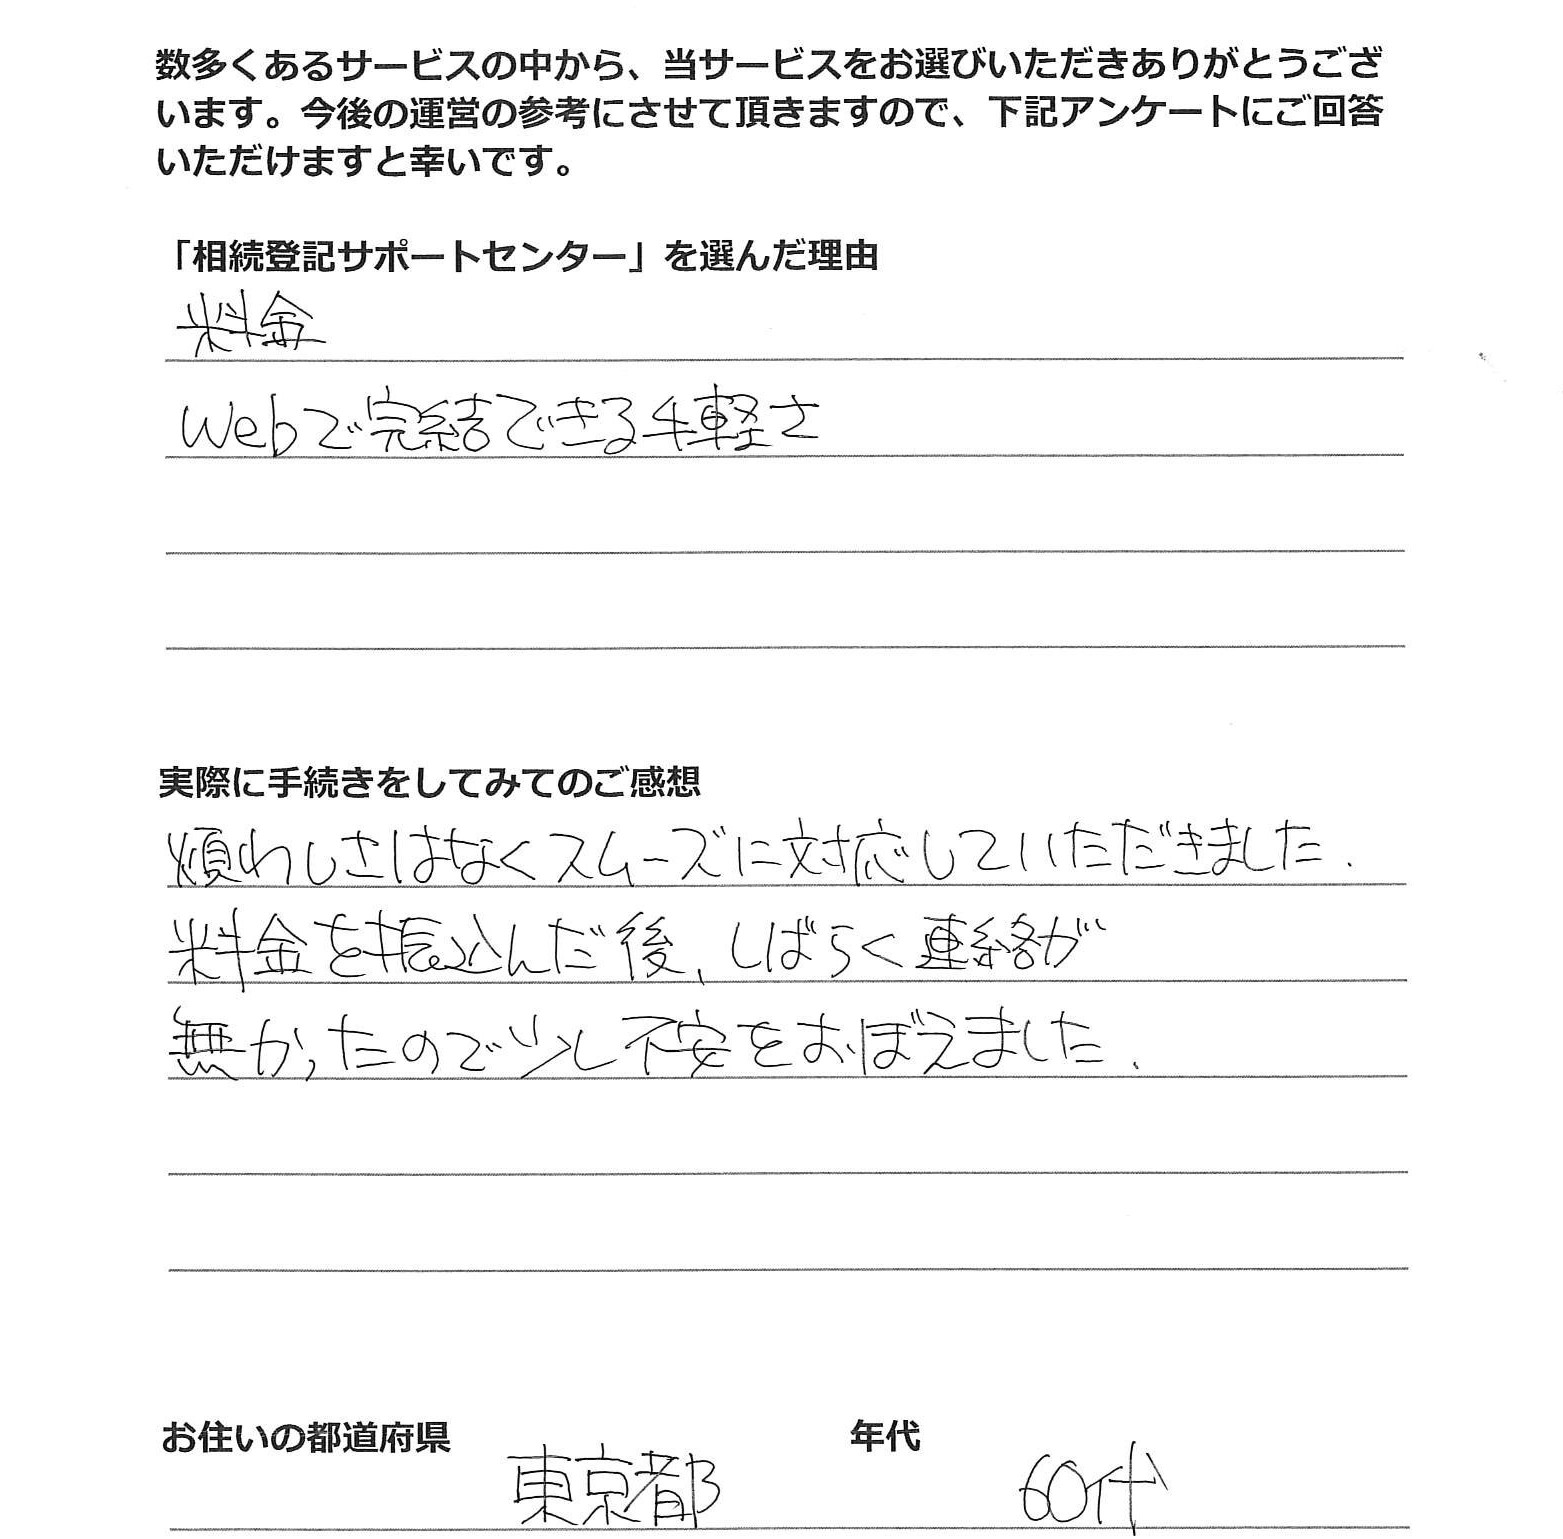 数多くあるサービスの中から、当サービスをお選びいただきありがとうござ
います。今後の運営の参考にさせて頂きますので、下記アンケートにご回答
いただけますと幸いです。
「相続登記サポートセンター」を選んだ理由
料金
Webで完結できる手軽さ
実際に手続きをしてみてのご感想
煩わしさはなくスムーズに対応していただきました.
料金を振込んだ後、しばらく連絡が
無かったので少し不安をおぼえました.
お住いの都道府県 東京都 年代 60代